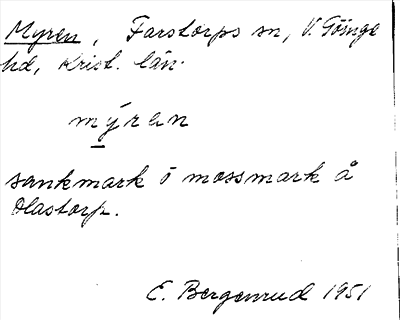 Myren, Farstorps sn, V. Göinge
hd, Krist. län.
mýran
sankmark o mossmark å
Olastorp.
E. Bergenrud 1951